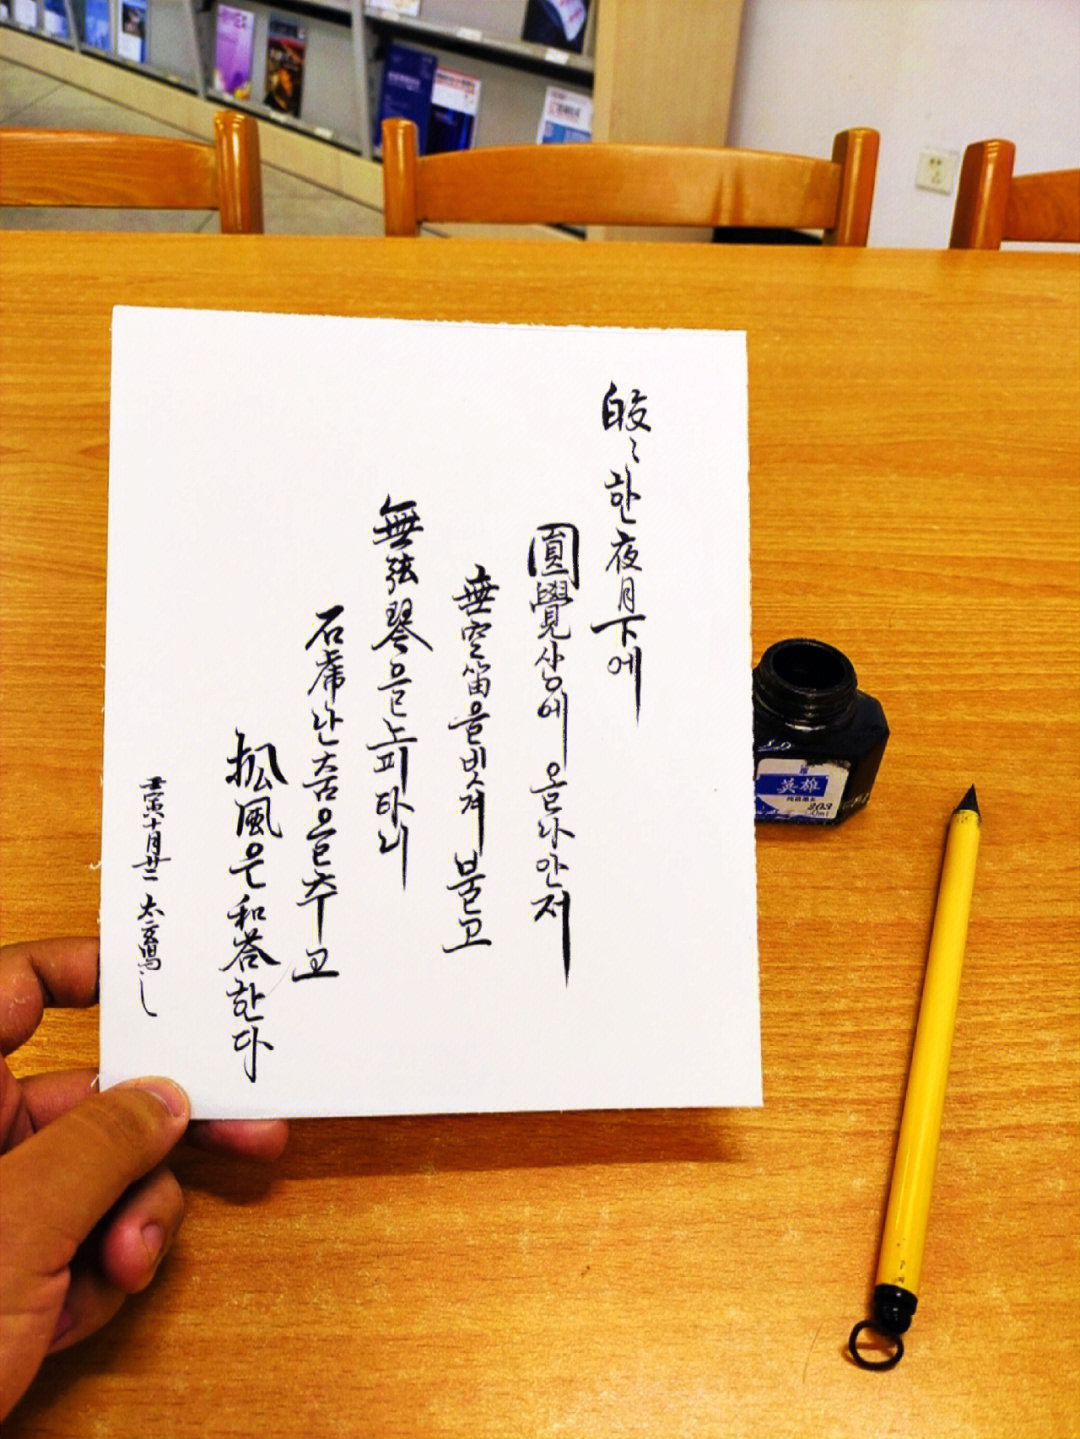 皎〻한夜月下에
圓覺상에 올나안저
無空笛을빗겨불고
無弦琴을노피타니
石虎난춤을추고
松風은和答한다
壬寅十月廿二 太玄寫
英雄
203